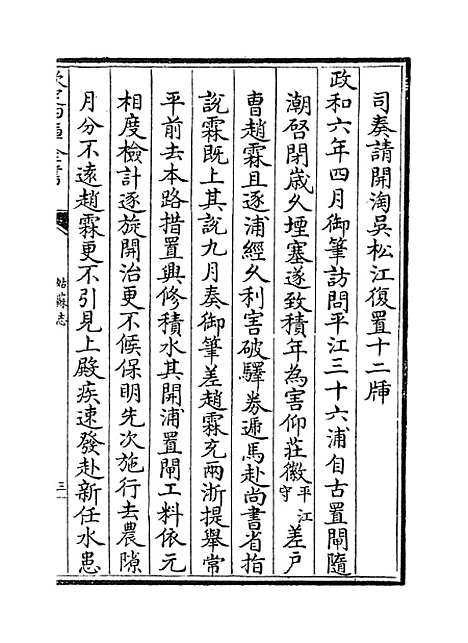 司奏請開淘吳松江復置十二牐
政和六年四月御筆訪問平江三十六浦自古置閘隨
潮啓閉歲久堙塞遂致積年為害仰莊徽平江守差戸
曹趙霖且逐浦經久利害破驛劵遞馬赴尚書省指
說霖既上其說九月奏御筆差趙霖充兩浙提舉常
平前去本路措置興修積水其開浦置閘工料依元
相度檢計逐旋開治更不候保明先次施行去農隙
月分不逺趙霖更不引見上殿疾速發赴新任水患
姑蘇志